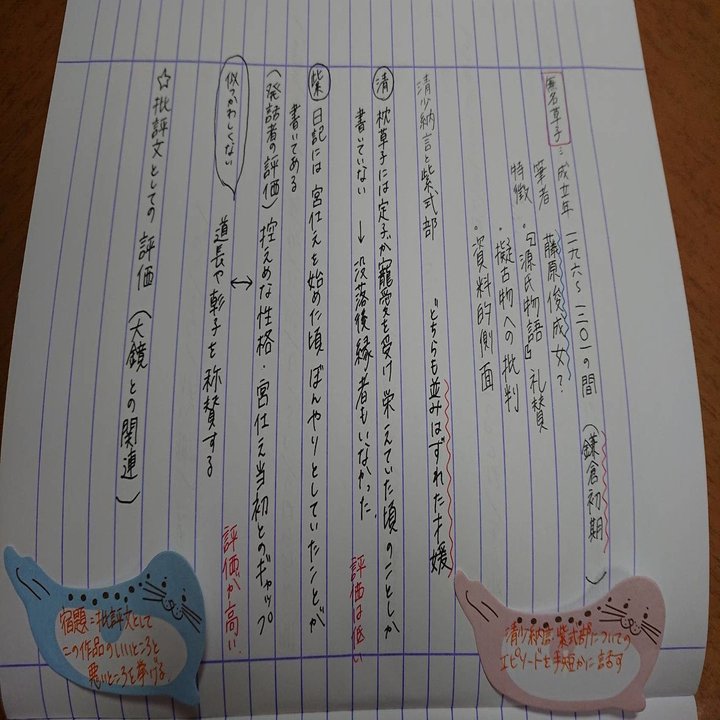 無名草子：成立年 一一九六〜一二〇一の間（鎌倉初期）
筆者 藤原俊成女？
特徴・『源氏物語』礼賛
・擬古物への批判
・資料的側面
清少納言と紫式部 どちらも並みはずれた才媛
清 枕草子には定子が寵愛を受け栄えていた頃のことしか
書いていない → 没落後縁者もいなかった。 評価は低い
紫 日記には宮仕えを始めた頃ぼんやりとしていたことが
書いてある
（発話者の評価）控えめな性格・宮仕え当初とのギャップ
似つかわしくない ↔
道長や彰子を称賛する 評価が高い。
☆批評文としての評価（大鏡との関連）
宿題＝批評文として
この作品のいいところと
悪いところを挙げる
清少納言・紫式部についての
エピソードを手短かに話す